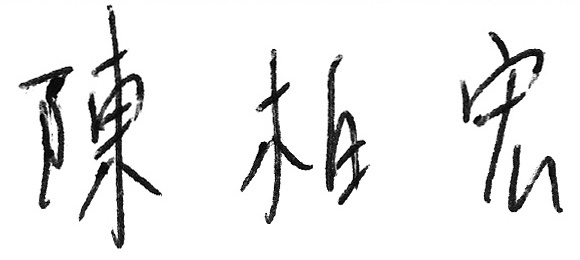 陳柏宏